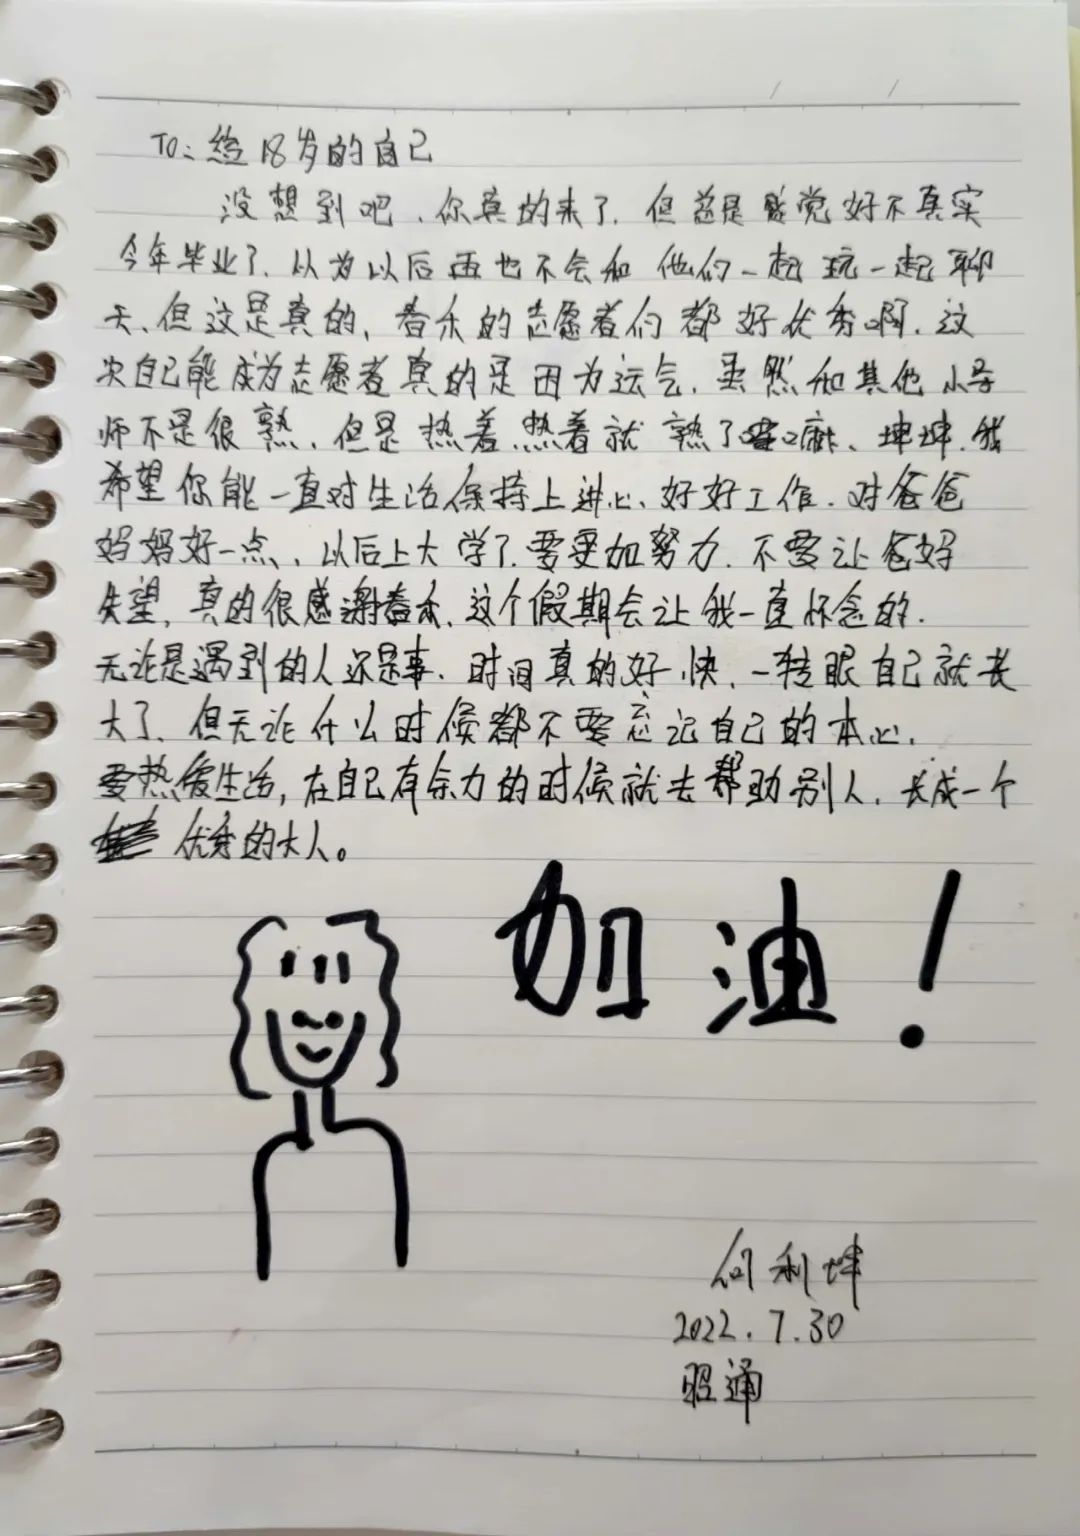 TO：给18岁的自己
没想到吧，你真的来了，但总是感觉好不真实
今年毕业了，以为以后再也不会和他们一起玩一起聊
天，但这是真的，春禾的志愿者们都好优秀啊，这
次自己能成为志愿者真的是因为运气，虽然和其他小导
师不是很熟，但是热着热着就熟了嘛、坤坤，我
希望你能一直对生活保持上进心、好好工作，对爸爸
妈妈好一点、以后上大学了要更加努力，不要让爸妈
失望，真的很感谢春禾，这个假期会让我一直怀念的，
无论是遇到的人还是事，时间真的好快，一转眼自己就长
大了，但无论什么时候都不要忘记自己的本心，
要热爱生活，在自己有余力的时候就去帮助别人，长成一个
优秀的大人。
加油！
何利坤
2022.7.30
昭通